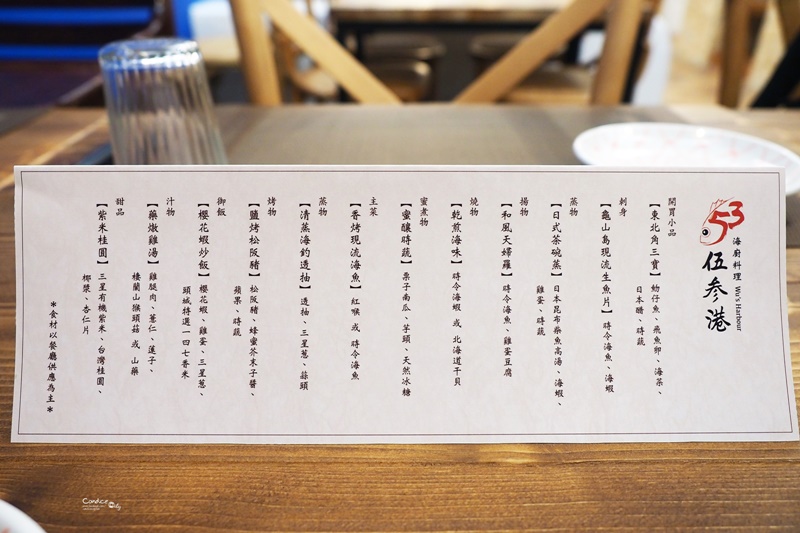 53
海廚料理 Wu's Harbour
伍參港
開胃小品
【東北角三寶】魩仔魚、飛魚卵、海菜、
日本醋、時蔬
刺身
【龜山島現流生魚片】時令海魚、海蝦
蒸物
【日式茶碗蒸】日本昆布柴魚高湯、海蝦、
雞蛋、時蔬
揚物
【和風天婦羅】時令海魚、雞蛋豆腐
燒物
【乾煎海味】時令海蝦 或 北海道干貝
蜜煮物
【蜜釀時蔬】栗子南瓜、芋頭、天然冰糖
主菜
【香烤現流海魚】紅喉 或 時令海魚
蒸物
【清蒸海釣透抽】透抽、三星蔥、蒜頭
烤物
【鹽烤松阪豬】松阪豬、蜂蜜芥末子醬、
蘋果、時蔬
御飯
【櫻花蝦炒飯】櫻花蝦、雞蛋、三星蔥、
頭城特選一四七香米
汁物
【藥燉雞湯】雞腿肉、薏仁、蓮子、
棲蘭山猴頭菇 或 山藥
甜品
【紫米桂圓】三星有機紫米、台灣桂圓、
椰漿、杏仁片
*食材以餐廳供應為主*